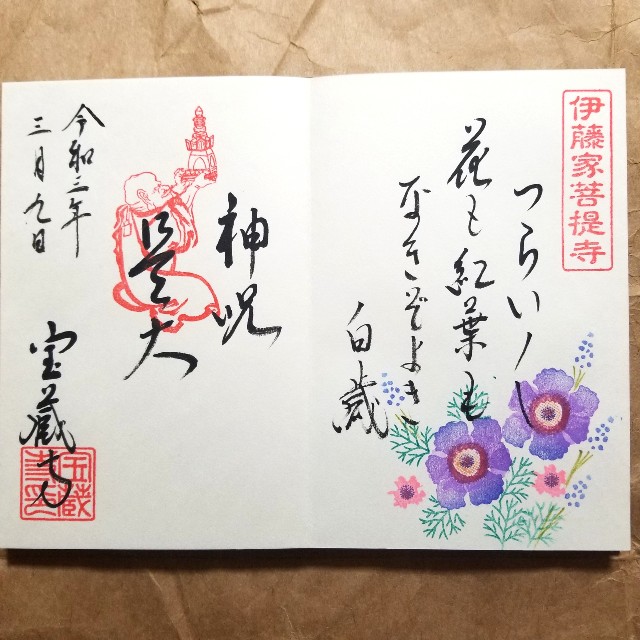 伊藤家菩提寺
花も紅葉も
なきぞよき
白蔵
神呪
是大
令和三年
三月九日
宝蔵寺